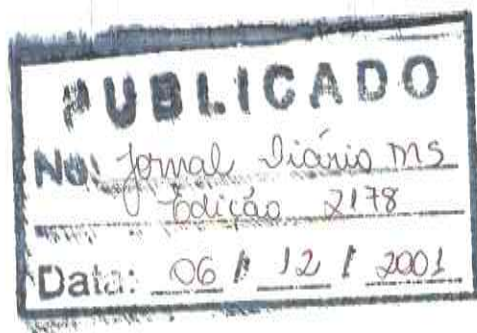 PUBLICADO
No: Jornal Diário MS
Edição 2178
Data: 06 / 12 / 2001